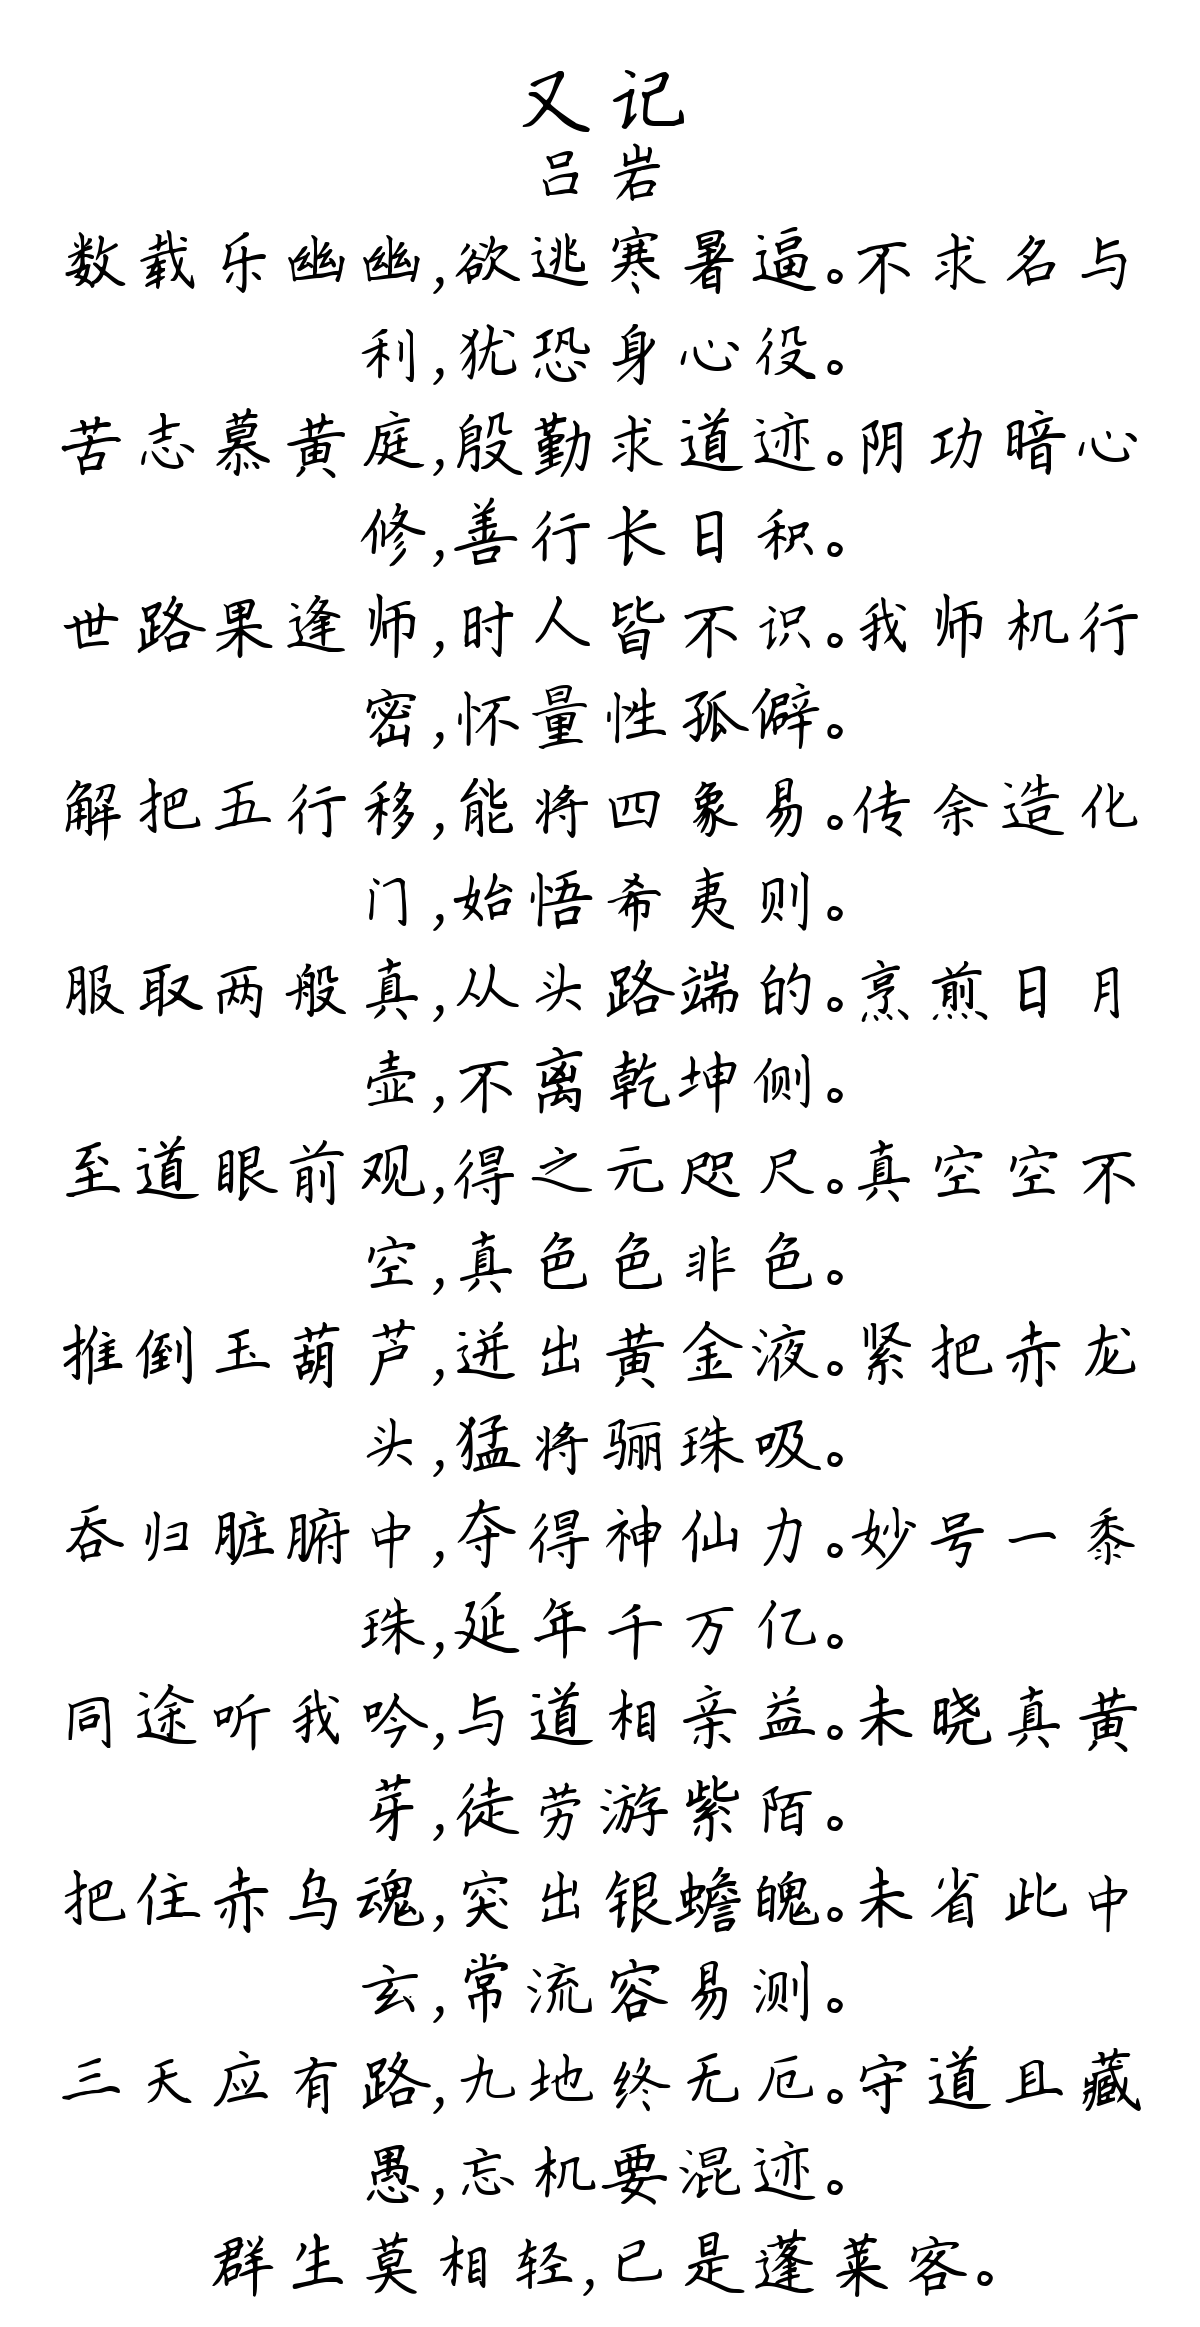 又记
吕岩
数载乐幽幽,欲逃寒暑逼。不求名与
利,犹恐身心役。
苦志慕黄庭,殷勤求道迹。阴功暗心
修,善行长日积。
世路果逢师,时人皆不识。我师机行
密,怀量性孤僻。
解把五行移,能将四象易。传余造化
门,始悟希夷则。
服取两般真,从头路端的。烹煎日月
壶,不离乾坤侧。
至道眼前观,得之元咫尺。真空空不
空,真色色非色。
推倒玉葫芦,迸出黄金液。紧把赤龙
头,猛将骊珠吸。
吞归脏腑中,夺得神仙力。妙号一黍
珠,延年千万亿。
同途听我吟,与道相亲益。未晓真黄
芽,徒劳游紫陌。
把住赤乌魂,突出银蟾魄。未省此中
玄,常流容易测。
三天应有路,九地终无厄。守道且藏
愚,忘机要混迹。
群生莫相轻,已是蓬莱客。